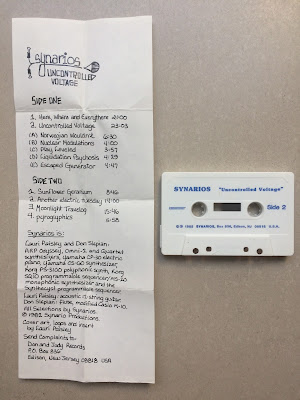 Synarios
UNCONTROLLED
VOLTAGE
SIDE ONE
1. Here, There and Everywhere 12:00
2. Uncontrolled Voltage 23:03
(A) Norwegian Wouldn't 6:30
(B) Nuclear Modulations 4:00
(C) Play Levelled 3:57
(D) Liquidation Psychosis 4:29
(E) Escaped Generator 4:47
SIDE TWO
1. Sunflower Geranium 8:46
2. Another electric Tuesday 14:00
3. Moonlight Travelog 15:46
4. pyroglyphics 6:58
Synarios is:
Lauri Paisley and Don Slepian:
ARP Odyssey, Omni-2, and Quartet
synthesizers, Yamaha CP-30 electric
piano, Yamaha CS-60 synthesizer,
Korg PS-3100 polyphonic synth, Korg
SQ-10 programmable sequencer/MS-20
monophonic synthesizer and the
Synthecyel programmable sequencer.
Lauri Paisley: acoustic 12 string guitar
Don Slepian: flute, modified Casio M-10.
All Selections by Synarios.
© 1982 Synario Productions.
Cover art, logos and insert
by Lauri Paisley
Send Complaints to:
Don and Judy Records
P.O. Box 836
Edison, New Jersey 08818 USA
SYNARIOS "Uncontrolled Voltage"
Side 2
© ℗ 1982 SYNARIOS, Box 836, Edison, NJ 08818 U.S.A.